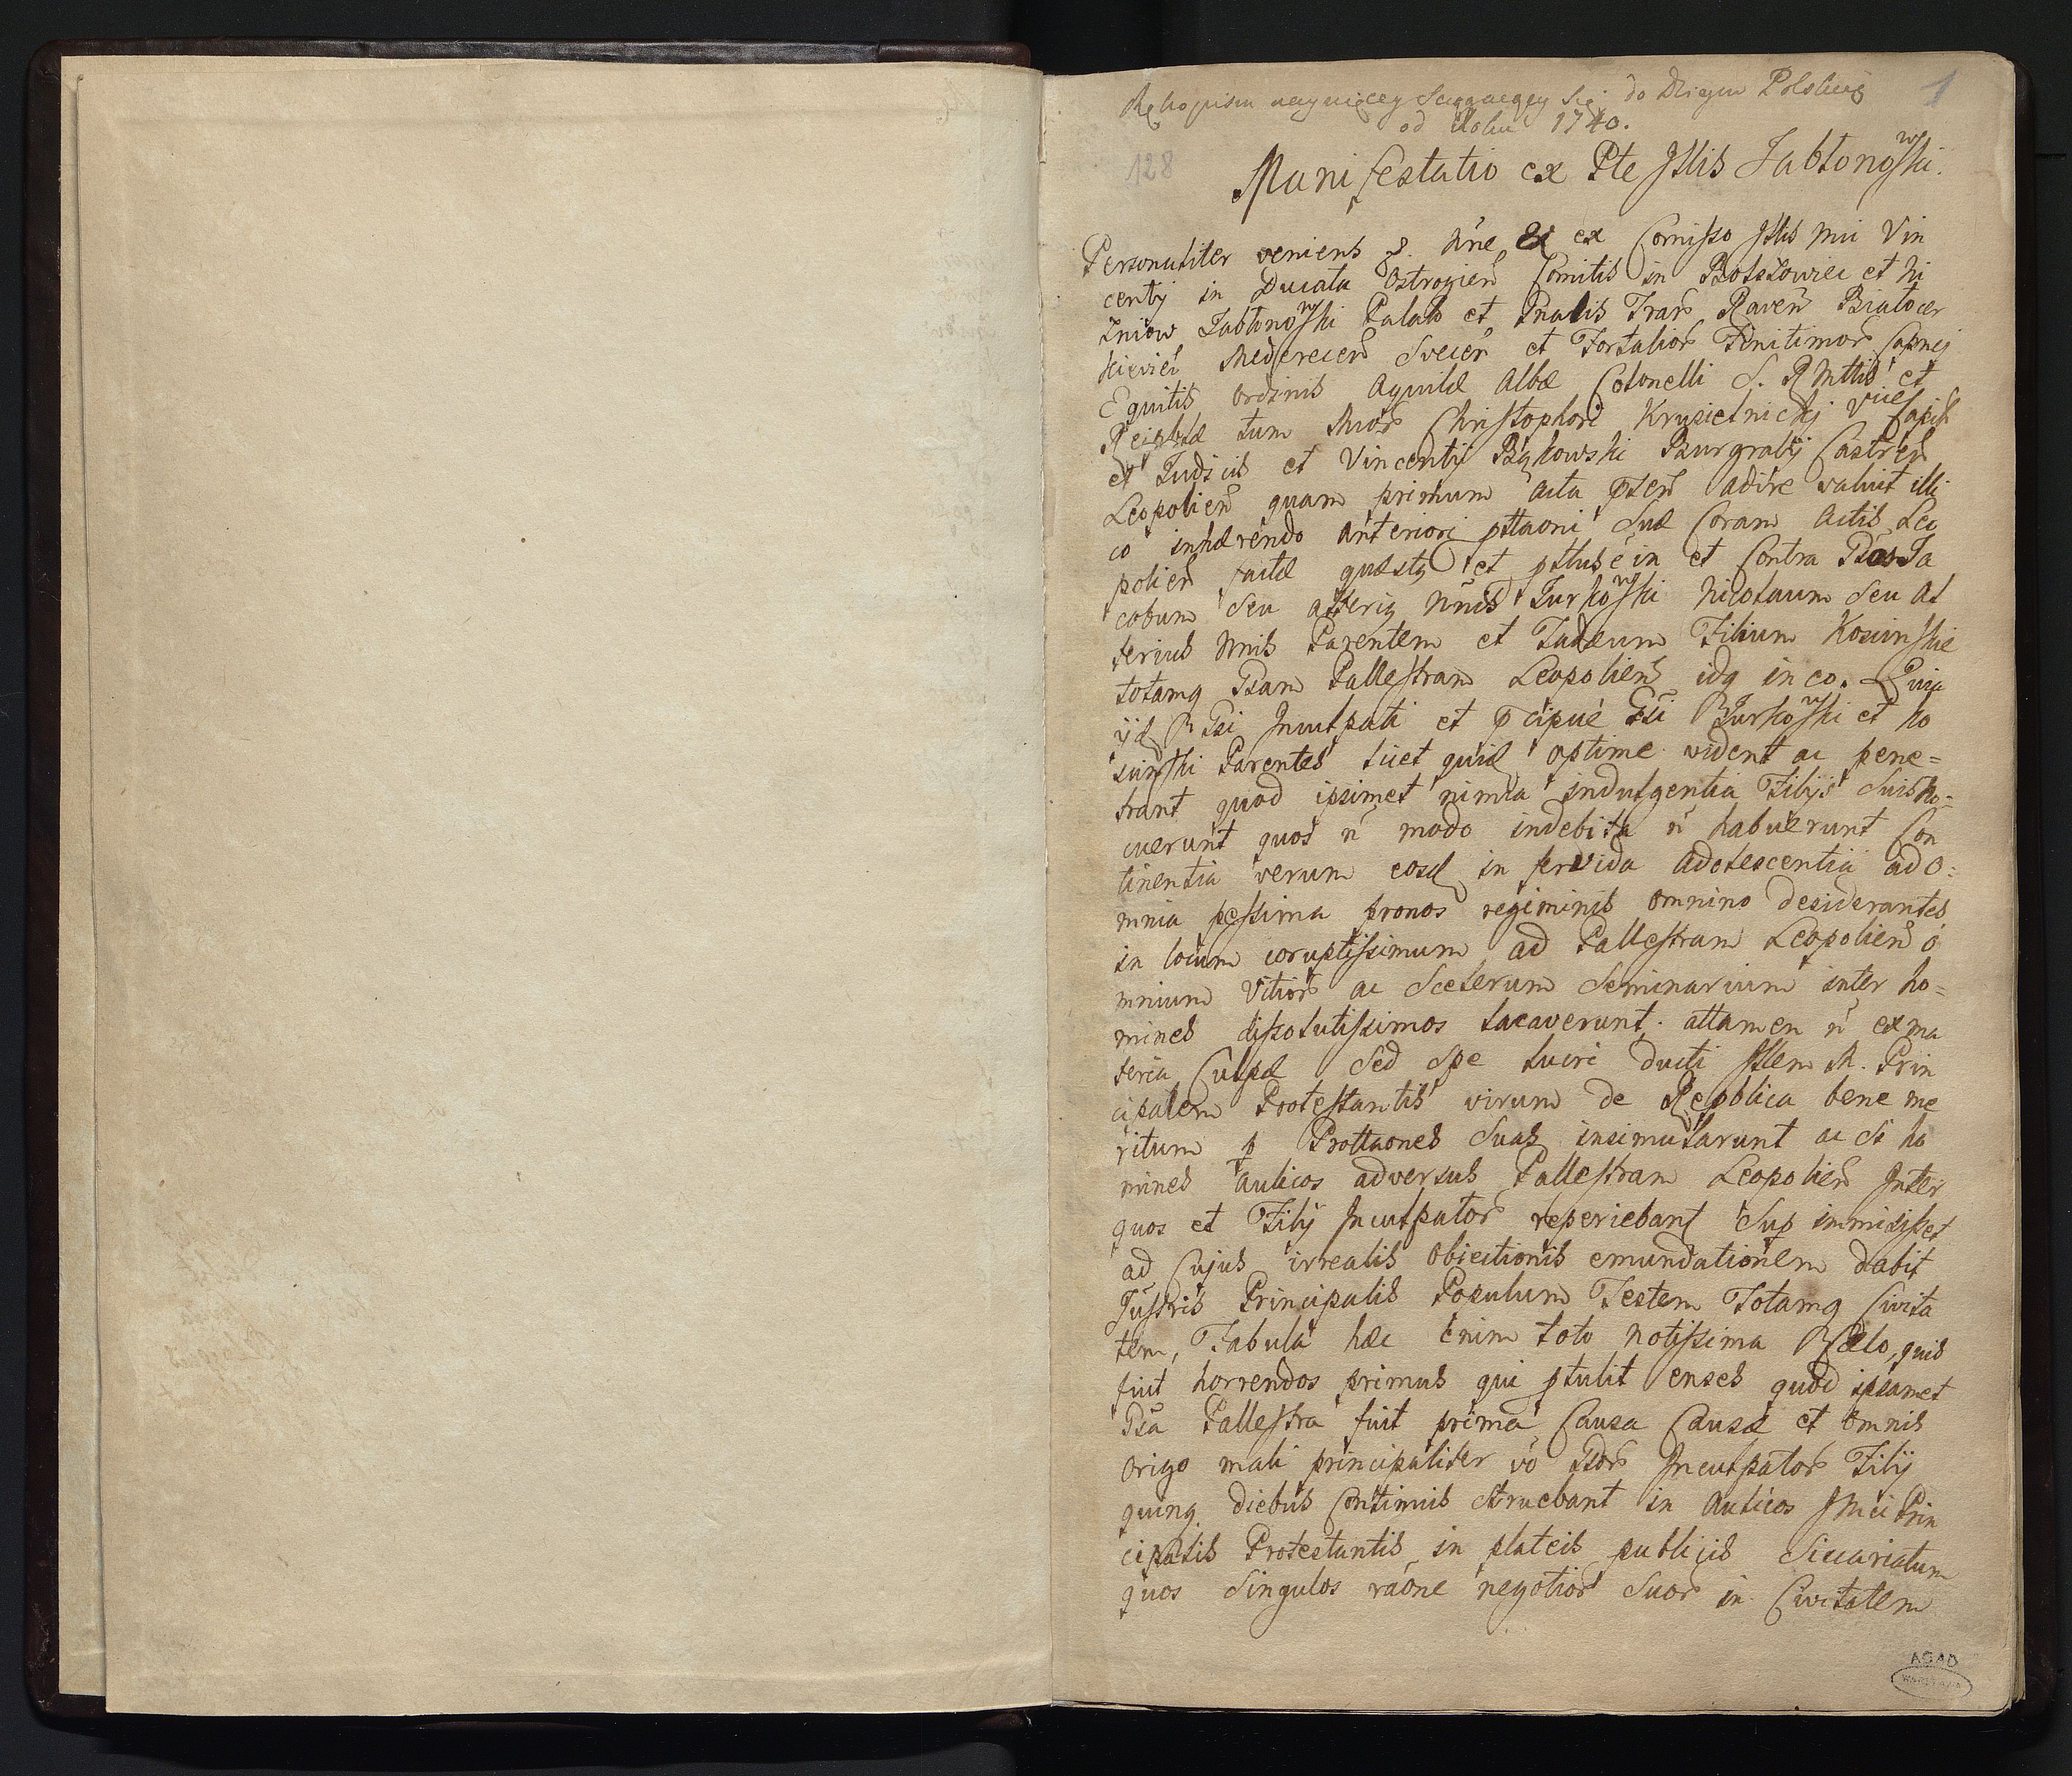 Rękopism naywięcey Sciągaiący Się do Dzieiow Polskich
od Roku 1740.
1
128
Manifestatio ex Pte Jllis Jabłonowski.
Personaliter veniens G. Nne ex Comisso Jllis Mci Vin
centÿ in Ducatu Ostrogień Comitis in Bołszowiec et Ni
żniow Jabłonowski Palatt et Gnalis Trar Raveń Białocer
kievień Medereceń Sveceń et Fortalior Finitimor Capnej
Equitis ordinis Aquilæ Albæ Colonelli S. R Mttis et
Reipblæ tum Mcior Christophori Krusielnickj Vice Capit
et Judicis et Vincentÿ Bąkowski Burgrabÿ Castreń
Leopolień quam primum acta pseń adire valuit illi
co inhærendo anteriori pttaoni Suæ Coram Actis Leo
polień factæ quæsty et pttus e in et Contra Gsos Ja
cobum Seu alteriq nnis Turkowski Nicolaum Seu Al
terius Nnis Parentem et Tadeum Filium Kosinskie
totamq Gsam Pallestram Leopolień idq in eo. Quia
ÿd R Gsi Inculpati et pcipue Gsi Burkowski et Ko
sinski Parentes licet quid optime vident ac pene=
trant quod ipsimet nimia indulgentia Filÿs Suis no=
cuerunt quos ń modo indebita ń habuerunt Con
tinentia verum eosd in fervida Adolescentia ad o=
mnia pessima pronos regiminis omnino desiderantes
in locum coruptissimum ad Pallestram Leopolień o
mnium Vitior ac Scelerum Seminarium inter ho=
mines dissolutissimos locaverunt. attamen ń ex ma
teria Culpæ Sed Spe lucri ducti Jllem M. Prin
cipalem Protestantis virum de Republica bene me
ritum p Prottaones Suas insimularunt ac Si ho
mines aulicos adversus Pallestram Leopolień Inter
quos et Filÿ Inculpator reperiebant Sup immisisset
ad Cujus irrealis Obiectionis emundationem dabit
Jllustris Principalis Populum Testem Totamq Civita
tem, Fabula hæc enim toto notissima Cælo, quis
fuit horrendos primus qui ptulit enses quod ipsamet
Gsa Pallestra fuit prima Causa Causæ et Omnis
origo mali principaliter vo Gsor Inculpator Filÿ
quinq diebus Continuis struebant in Aulicos Jmci Prin
cipalis Protestantis in plateis publicis Sicariatum
quos Singulos raone negotior Suor in Civitatem
AGAD
WARSZAWA